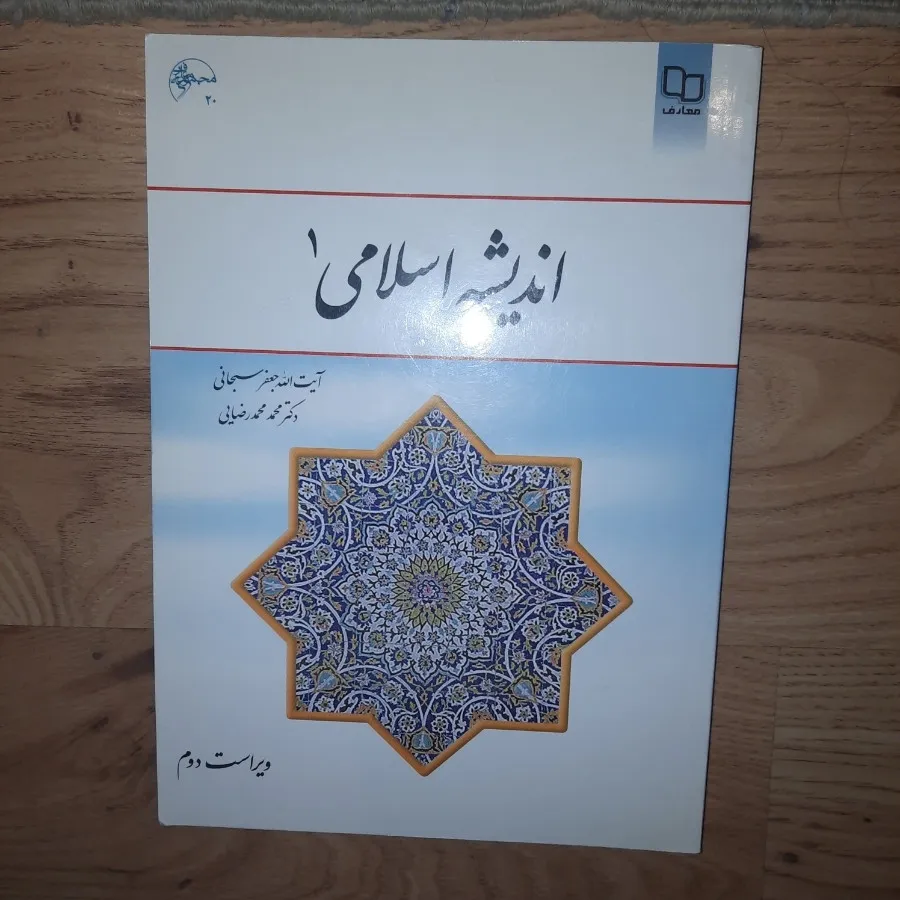 ۲۰
معارف
اندیشه اسلامی ۱
آیت الله جعفر سبحانی
دکتر محمد محمدرضایی
ویراست دوم